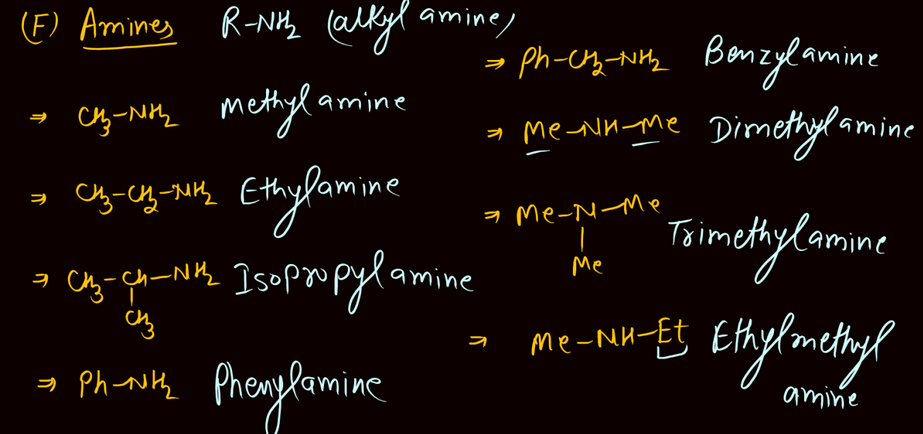 (F) Amines R-NH2 (alkyl amine)
⇒ CH3-NH2 Methylamine
⇒ CH3-CH2-NH2 Ethylamine
⇒ CH3-CH-NH2 Isopropylamine
CH3
⇒ Ph-NH2 Phenylamine
⇒ Ph-CH2-NH2 Benzylamine
⇒ Me-NH-Me Dimethylamine
⇒ Me-N-Me Trimethylamine
Me
⇒ Me-NH-Et Ethylmethyl
amine